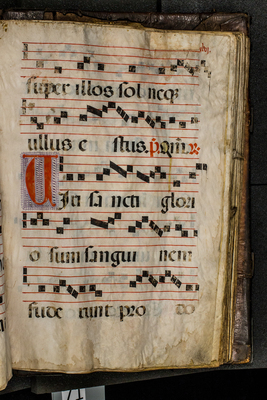 super illos sol neqꝫ
ullus e stus. p̄. Qm̄.
Isti sancti glori
o sum sangui nem
fude runt pro do